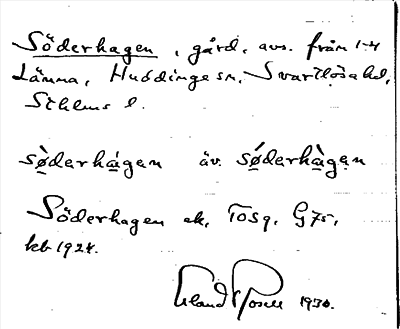 Söderhagen, gård, avs. från 1-4
Länna, Huddinge sn, Svartlösa hd,
Sthlms l.
sö̀derhá̱gen äv. sö́derhà̱gen
Söderhagen ek, Tosq. G75,
kb 1924.
Erland Rosell 1930.